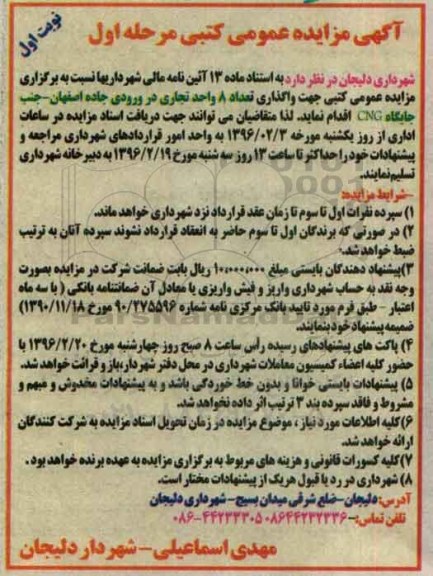 نوبت اول
آگهی مزایده عمومی کتبی مرحله اول
شهرداری دلیجان در نظر دارد به استناد ماده ۱۳ آئین نامه مالی شهرداریها نسبت به برگزاری
مزایده عمومی کتبی جهت واگذاری تعداد ۸ واحد تجاری در ورودی جاده اصفهان-جنب
جایگاه CNG اقدام نماید. لذا متقاضیان می توانند جهت دریافت اسناد مزایده در ساعات
اداری از روز یکشنبه مورخه ۱۳۹۶/۰۲/۳ به واحد امور قراردادهای شهرداری مراجعه و
پیشنهادات خود را حداکثر تا ساعت ۱۳ روز سه شنبه مورخ ۱۳۹۶/۲/۱۹ به دبیرخانه شهرداری
تسلیم نمایند.
-شرایط مزایده:
۱) سپرده نفرات اول تا سوم تا زمان عقد قرارداد نزد شهرداری خواهد ماند.
۲) در صورتی که برندگان اول تا سوم حاضر به انعقاد قرارداد نشوند سپرده آنان به ترتیب
ضبط خواهد شد.
۳) پیشنهاد دهندگان بایستی مبلغ ۱۰،۰۰۰،۰۰۰ ریال بابت ضمانت شرکت در مزایده بصورت
وجه نقد به حساب شهرداری واریز و فیش واریزی یا معادل آن ضمانتنامه بانکی ( با سه ماه
اعتبار - طبق فرم مورد تایید بانک مرکزی نامه شماره ۹۰/۲۷۵۵۹۶ مورخ ۱۳۹۰/۱۱/۱۸)
ضمیمه پیشنهاد خود بنمایند.
۴) پاکت های پیشنهادهای رسیده رأس ساعت ۸ صبح روز چهارشنبه مورخ ۱۳۹۶/۲/۲۰ با
حضور کلیه اعضاء کمیسیون معاملات شهرداری در محل دفتر شهردار، باز و قرائت خواهد شد.
۵) پیشنهادات بایستی خوانا و بدون خط خوردگی باشد و به پیشنهادات مخدوش و مبهم و
مشروط و فاقد سپرده بند ۳ ترتیب اثر داده نخواهد شد.
۶) کلیه اطلاعات مورد نیاز ، موضوع مزایده در زمان تحویل اسناد مزایده به شرکت کنندگان
ارائه خواهد شد.
۷) کلیه کسورات قانونی و هزینه های مربوط به برگزاری مزایده به عهده برنده خواهد بود .
۸) شهرداری در رد یا قبول هریک از پیشنهادات مختار است.
آدرس: دلیجان-ضلع شرقی میدان بسیج-شهرداری دلیجان
تلفن تماس:-۰۸۶۴۴۲۳۲۳۳۶ ۰۸۶-۴۴۲۳۳۳۰۵
مهدی اسماعیلی-شهردار دلیجان